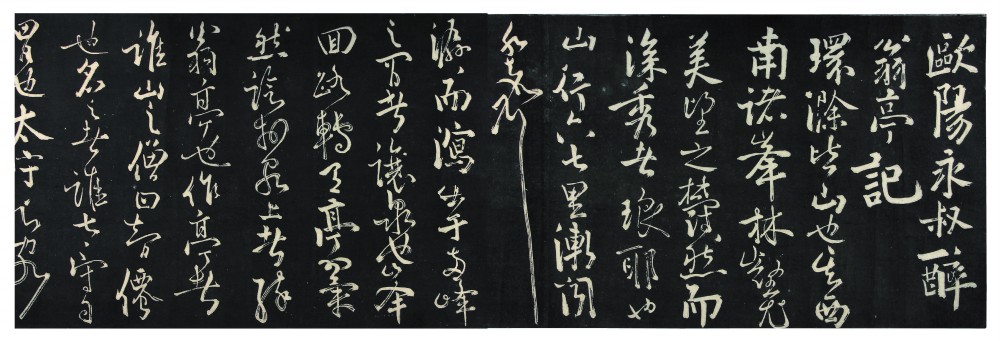 歐陽永叔醉
翁亭記
環滁皆山也其西
南諸峯林壑尤
美望之蔚然而
深秀者琅耶也
山行六七里漸聞
水聲
潺潺而瀉出于兩峰
之間者釀泉也峯
回路轉有亭翼
然臨於泉上者醉
翁亭也作亭者
誰山之僧曰智僊
也名之者誰太守自
謂也太守與客